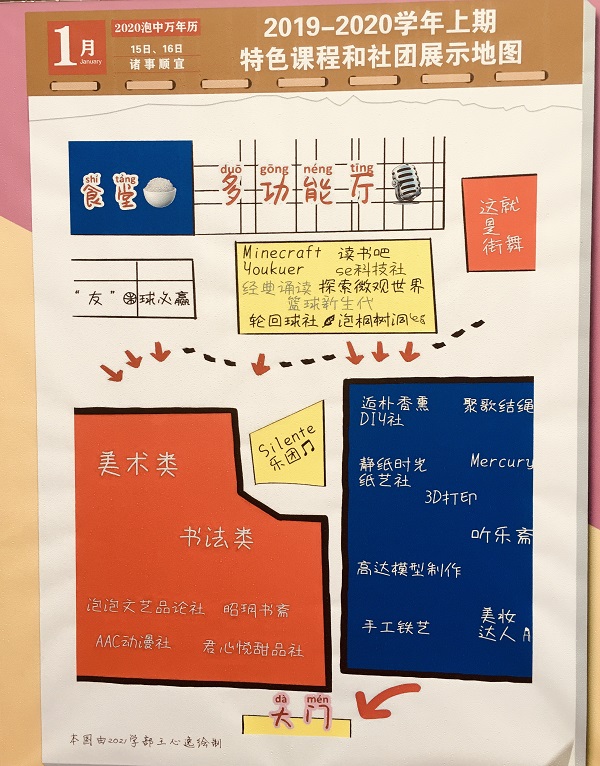 1月
January
2020泡中万年历
15日、16日
诸事顺宜
2019-2020学年上期
特色课程和社团展示地图
shí táng
食堂
duō gōng néng tīng
多功能厅
这就
是
街舞
Minecraft 读书吧
Youkuer se科技社
经典诵读 探索微观世界
篮球新生代
轮回球社 泡桐树洞
“友”团球必赢
Silente
乐团
美术类
书法类
泡泡文艺品论社 昭玥书斋
AAC动漫社 君心悦甜品社
DIY社
聚歌结绳
静纸时光
纸艺社
Mercury
3D打印
听乐斋
高达模型制作
手工铁艺
美妆
达人
dà mén
大门
本图由2021学部王心逸绘制